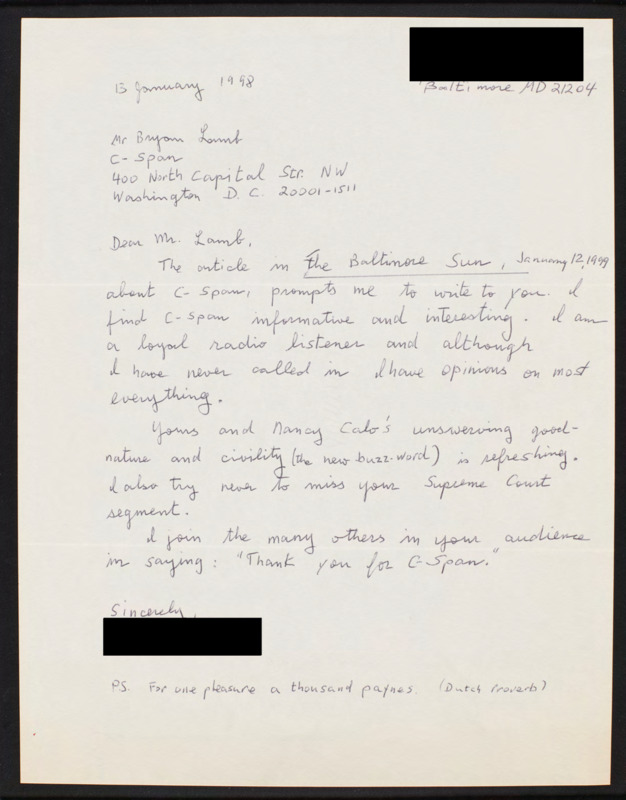 Baltimore MD 21204
13 January 1998
Mr Bryan Lamb
C-Span
400 North Capital Str. NW
Washington D.C. 20001-1511
Dear Mr. Lamb,
The article in The Baltimore Sun, January 12, 1999
about C-Span, prompts me to write to you. I
find C-Span informative and interesting. I am
a loyal radio listener and although
I have never called in I have opinions on most
everything.
Yours and Nancy Calo's unswerving good-
nature and civility (the new buzz-word) is refreshing.
I also try never to miss your Supreme Court
segment.
I join the many others in your audience
in saying: "Thank you for C-Span."
Sincerely,
PS. For one pleasure a thousand paynes. (Dutch Proverb)